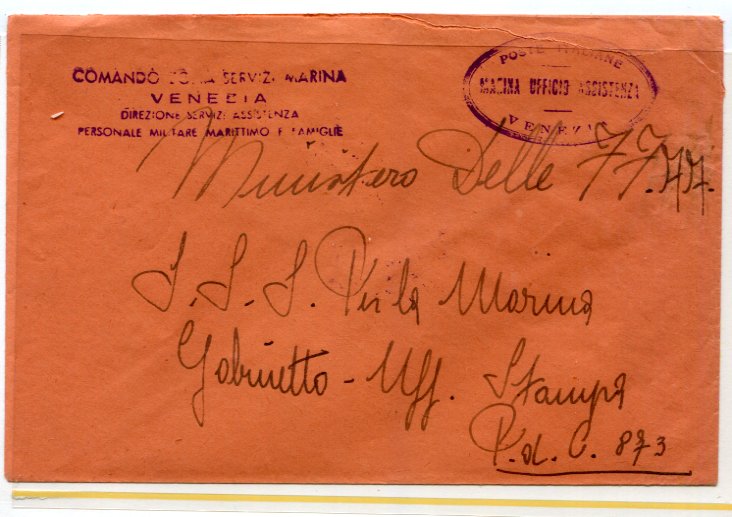 COMANDO ZONA SERVIZI MARINA
VENEZIA
DIREZIONE SERVIZI ASSISTENZA
PERSONALE MILITARE MARITTIMO E FAMIGLIE
POSTE ITALIANE
MARINA UFFICIO ASSISTENZA
VENEZIA
Ministero Delle FF.AA.
S. S. S. Per la Marina
Gabinetto - Uff. Stampa
P.d.C. 873